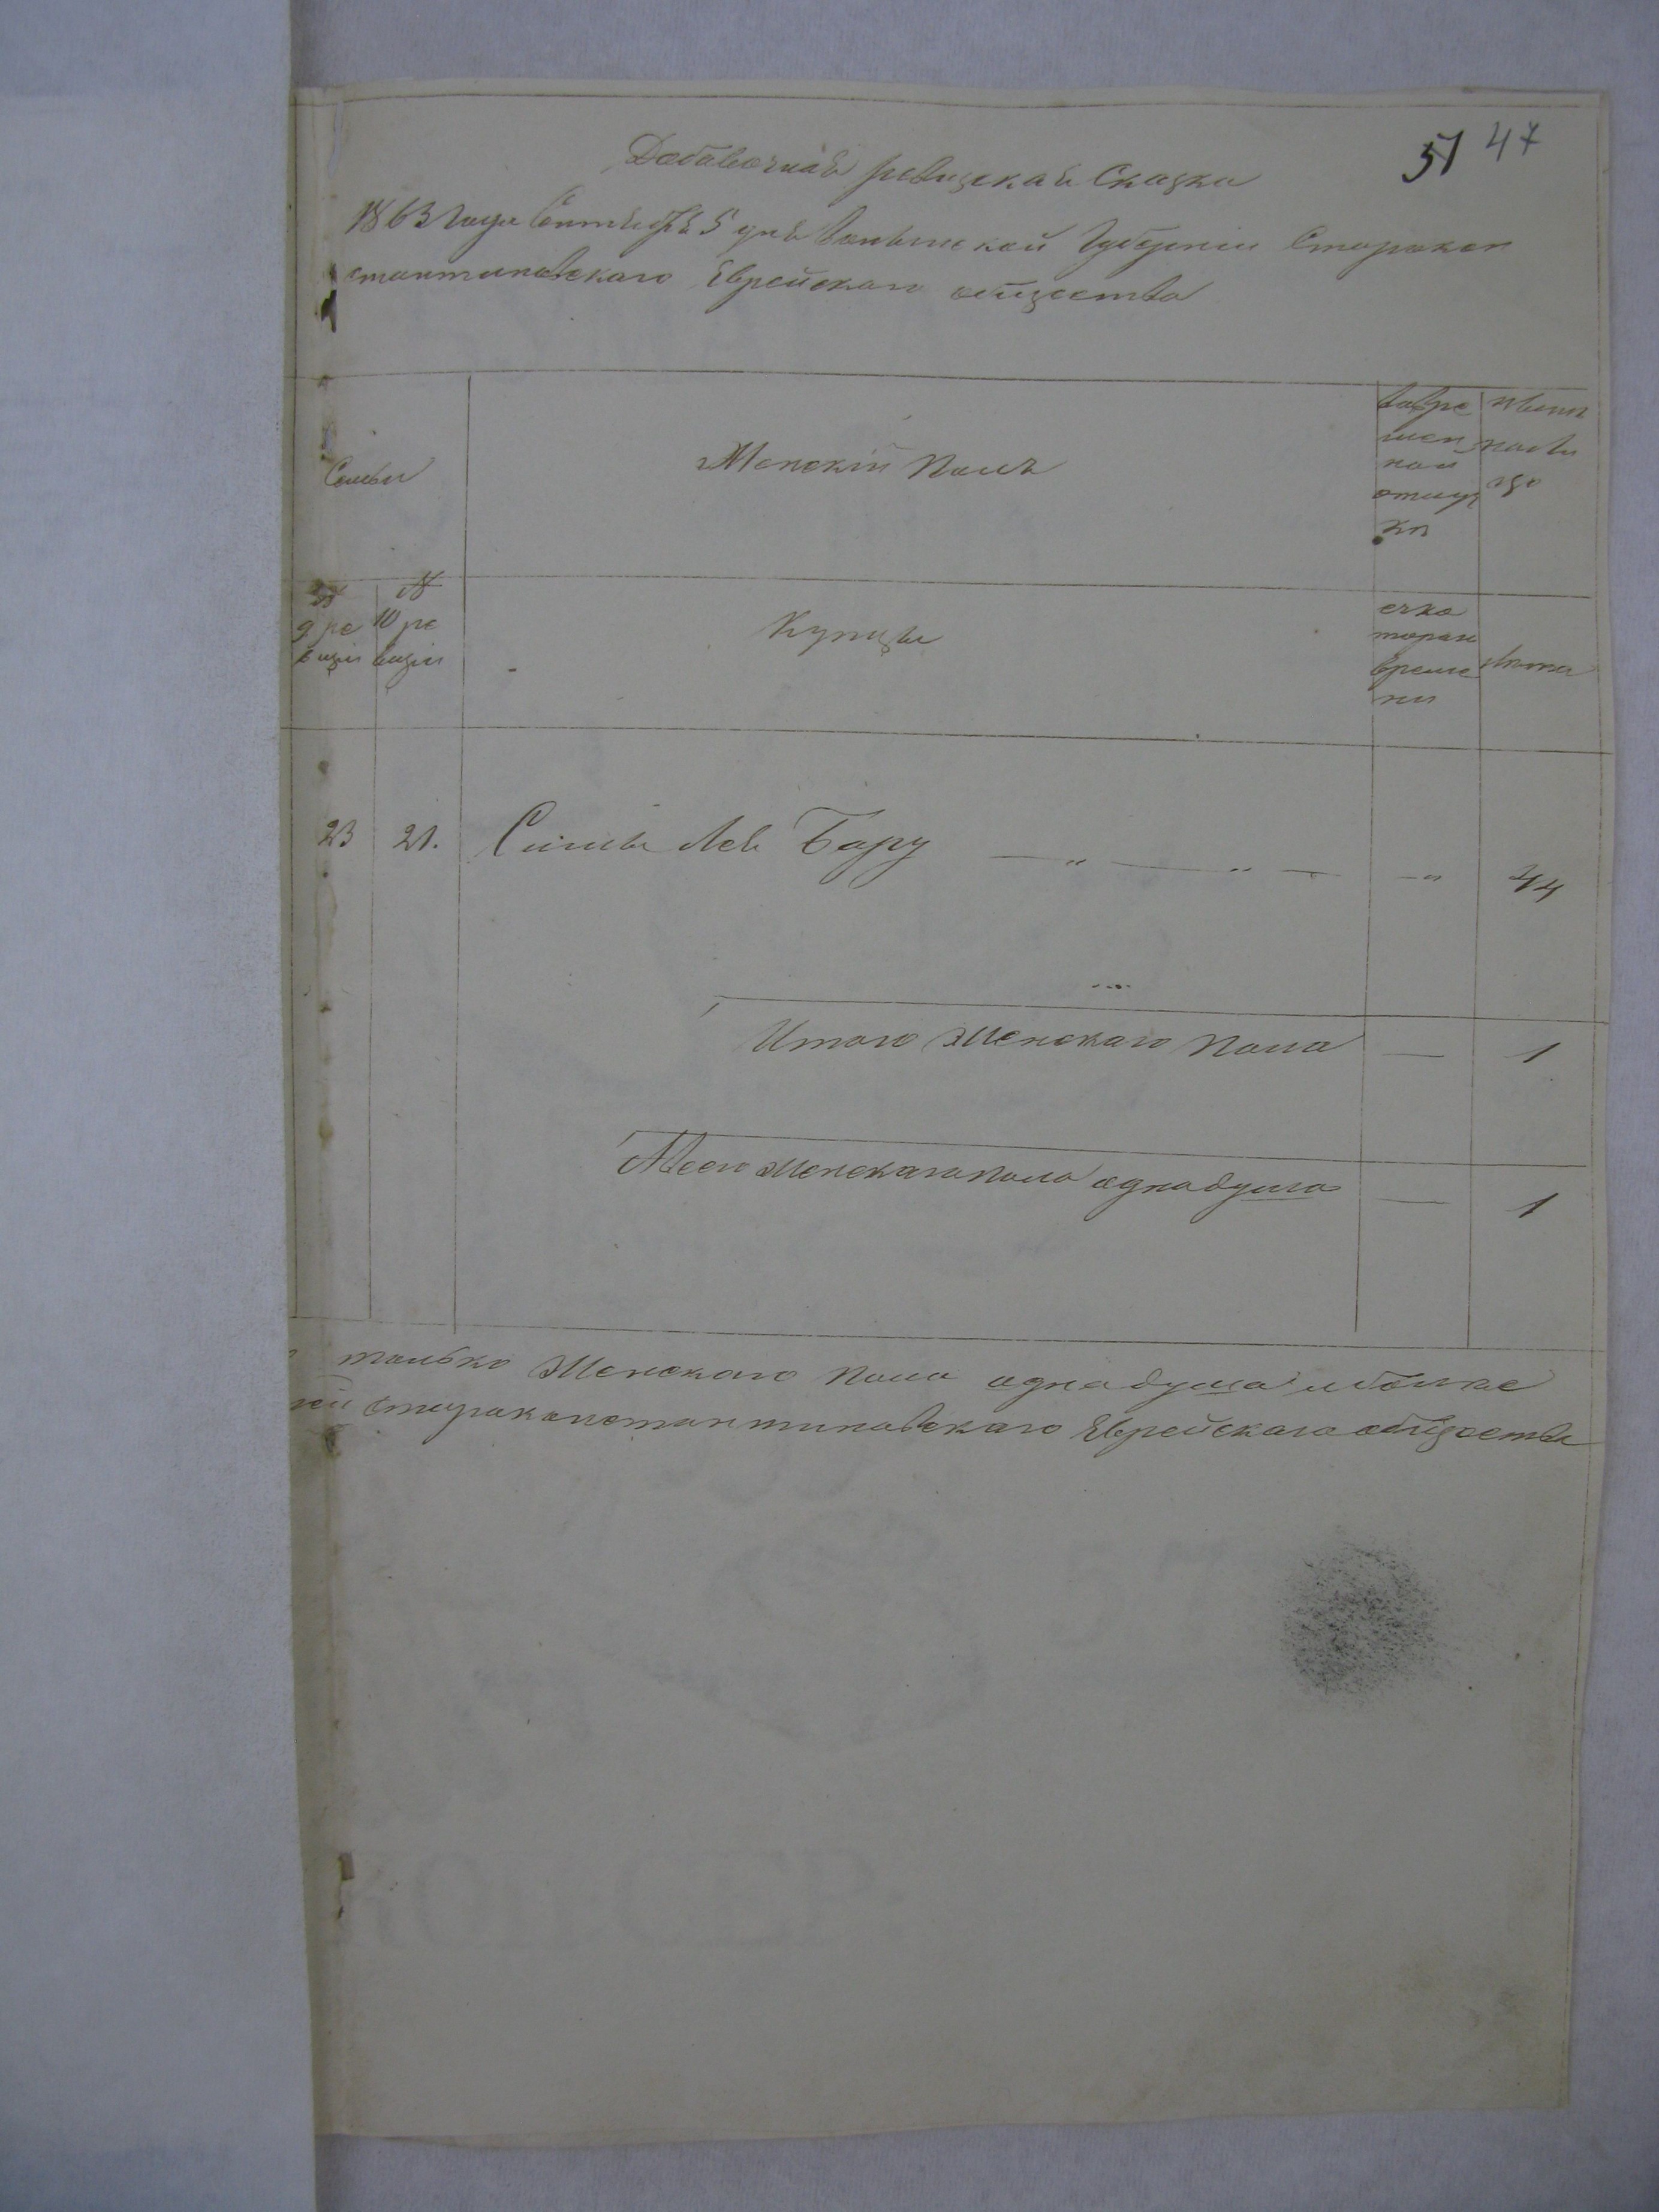 51 47
Добавочная ревизская Сказка
1863 Года Сентября 5 дня Волынской Губернии Старокон
стантиновскаго Еврейского общества
Семьи
Женский Полъ
во вре
мен
ной
отлуч
ки
ныне
на ли
цо
№
9 ре
визiи
№
10 ре
визiи
Купцы
съ ко
тораго
време
ни
лета
23 21. Бару — " — " — — " 44
Итого Женскаго Пола — 1
Всего женскаго пола одна душа — 1
только Женскаго Пола одна душа и более
Староконстантиновскаго Еврейскаго общества